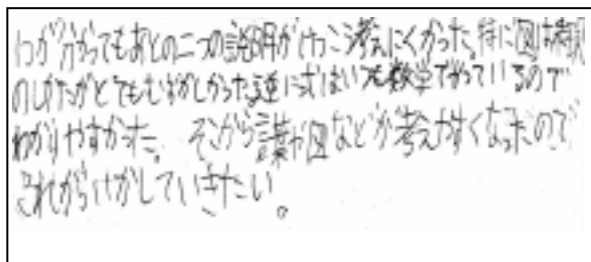 わが分かってもあとの二つの説明がけっこう考えにくかった。特に図は表現
のしかたがとてもむずかしかった。逆に式はいつも数学でやっているので
わかりやすかった。そこから言葉や図などが考えやすくなったので
これからいかしていきたい。